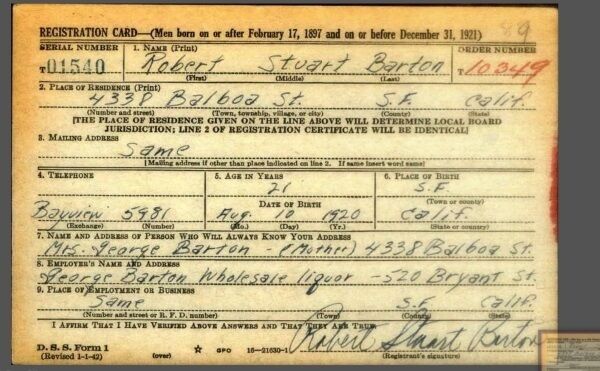 89
REGISTRATION CARD—(Men born on or after February 17, 1897 and on or before December 31, 1921)
SERIAL NUMBER 1. NAME (Print) ORDER NUMBER
T 01540 Robert Stuart Barton T 10349
(First) (Middle) (Last)
2. PLACE OF RESIDENCE (Print)
4338 Balboa St. S.F. Calif.
(Number and street) (Town, township, village, or city) (County) (State)
[THE PLACE OF RESIDENCE GIVEN ON THE LINE ABOVE WILL DETERMINE LOCAL BOARD
JURISDICTION; LINE 2 OF REGISTRATION CERTIFICATE WILL BE IDENTICAL]
3. MAILING ADDRESS
Same
[Mailing address if other than place indicated on line 2. If same insert word same]
4. TELEPHONE 5. AGE IN YEARS 6. PLACE OF BIRTH
21 S.F.
DATE OF BIRTH (Town or county)
Bayview 5981 Aug. 10 1920 Calif.
(Exchange) (Number) (Mo.) (Day) (Yr.) (State or country)
7. NAME AND ADDRESS OF PERSON WHO WILL ALWAYS KNOW YOUR ADDRESS
Mrs. George Barton - (Mother) 4338 Balboa St.
8. EMPLOYER'S NAME AND ADDRESS
George Barton Wholesale liquor - 520 Bryant St.
9. PLACE OF EMPLOYMENT OR BUSINESS
Same S.F. Calif.
(Number and street or R. F. D. number) (Town) (County) (State)
I AFFIRM THAT I HAVE VERIFIED ABOVE ANSWERS AND THAT THEY ARE TRUE.
Robert Stuart Barton
D. S. S. Form 1
(Revised 1-1-42) (over) ☆ GPO 16—21630-1 (Registrant's signature)